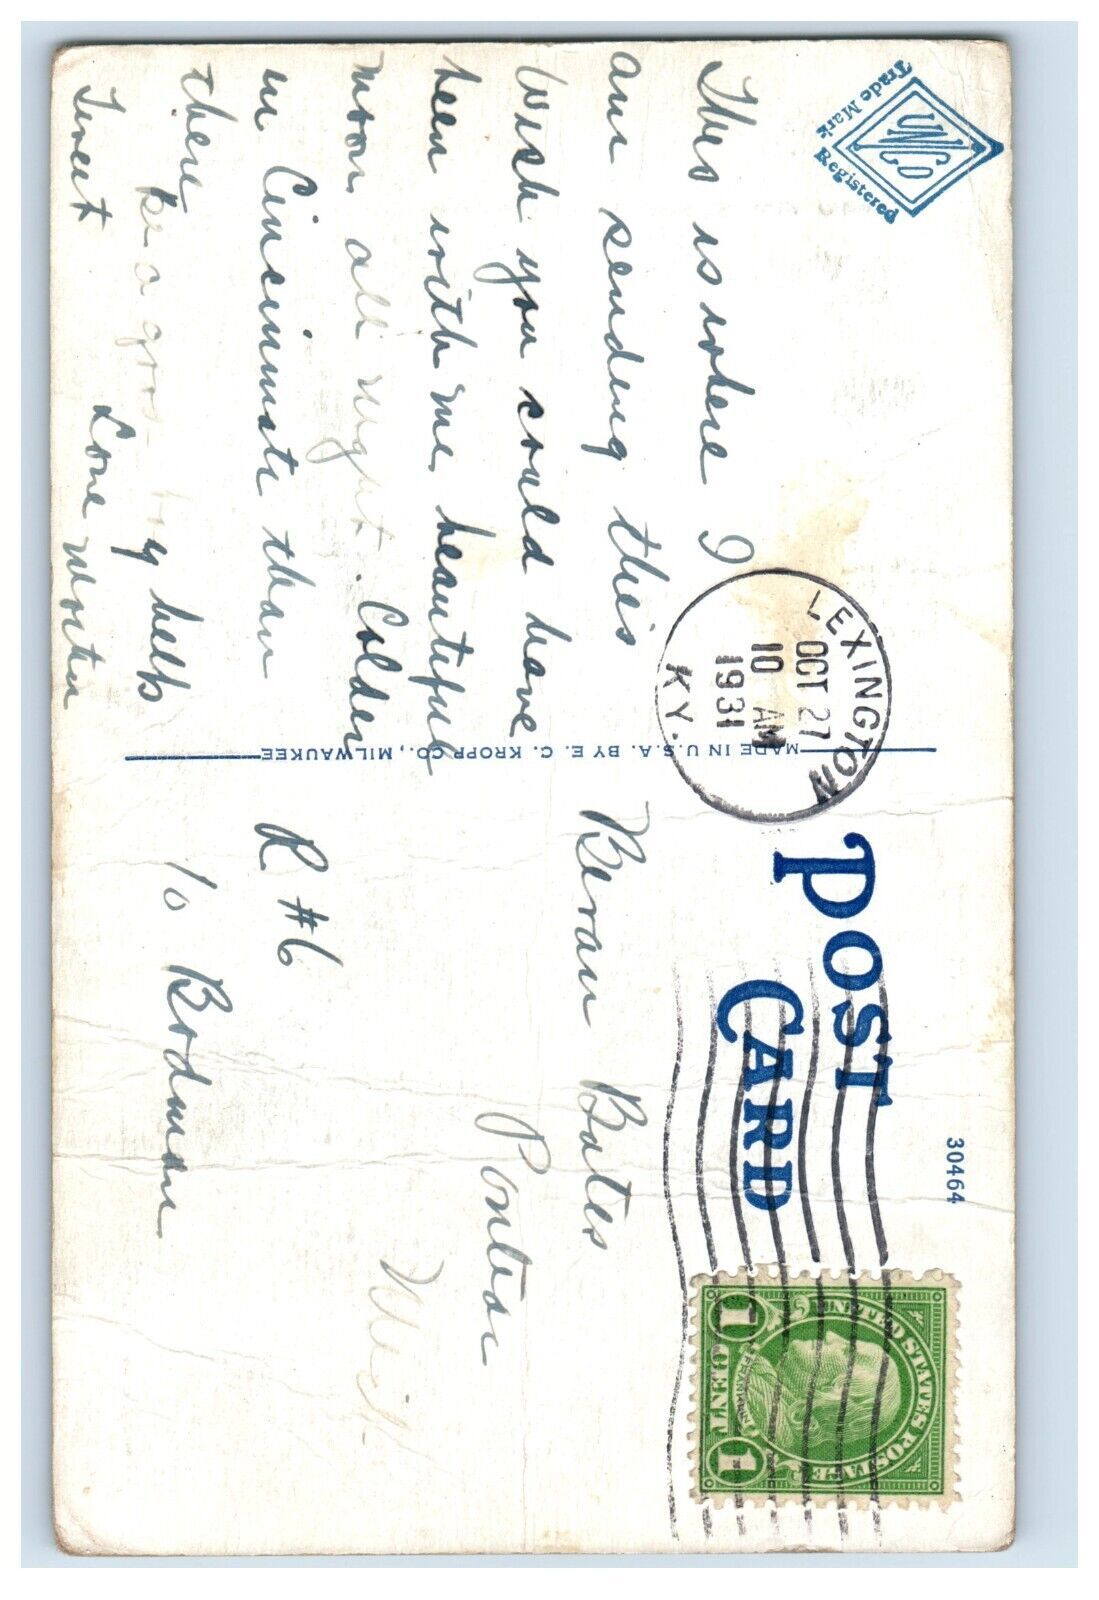 UNICO
Trade Mark Registered
This is where I
am sending this
Wish you could have
been with me beautiful
moon all night. Colder
in Cincinnati than
there
Be a good
Love
POST CARD
30464
MADE IN U.S.A. BY E. C. KROPP CO., MILWAUKEE
LEXINGTON
OCT 27
10 AM
1931
KY.
UNITED STATES POSTAGE
FRANKLIN
1 CENT 1
Beran Bates
Pontiac
Mich
R #6
% Bodman